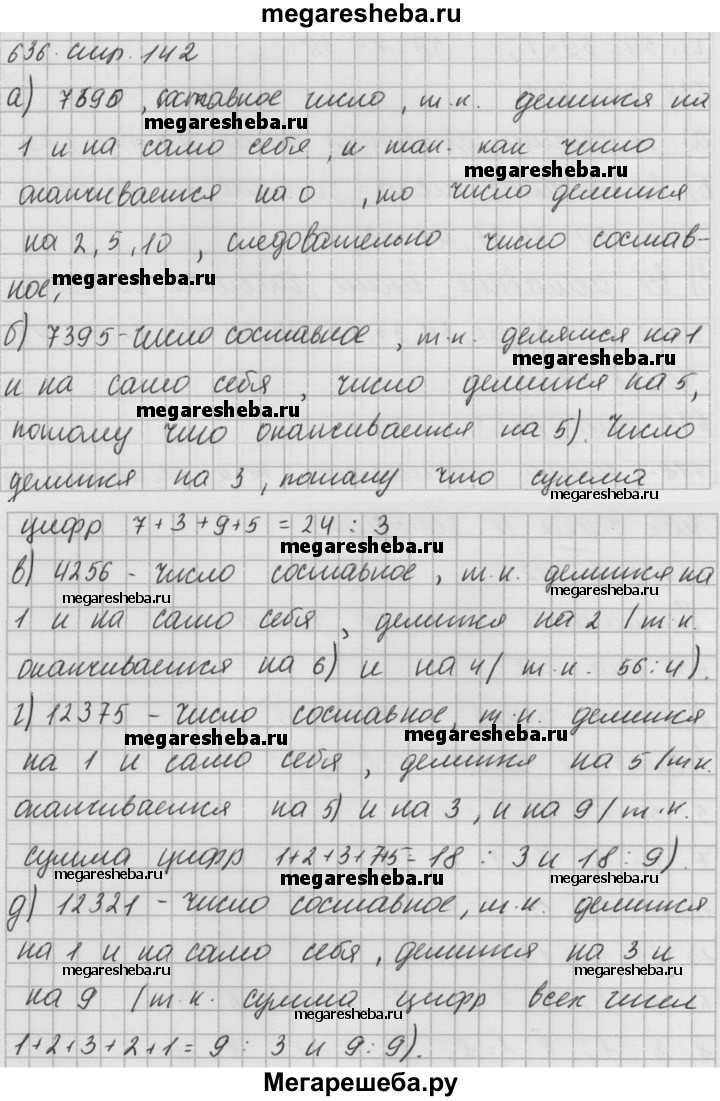 megaresheba.ru
636. стр. 142
а) 7390, составное число, т.к. делится на
megaresheba.ru
1 и на само себя, и так. как число
megaresheba.ru
оканчивается на 0, то число делится
на 2, 5, 10, следовательно число состав-
megaresheba.ru
ное,
б) 7395 - число составное, т.к. делятся на 1
megaresheba.ru
и на само себя, число делится на 5,
megaresheba.ru
потому что оканчивается на 5). Число
делится на 3, потому что сумма
megaresheba.ru
цифр 7+3+9+5 = 24 : 3
megaresheba.ru
в) 4256 - число составное, т.к. делится на
megaresheba.ru megaresheba.ru
1 и на само себя, делится на 2 /т.к.
megaresheba.ru
оканчивается на 6) и на 4/ т.к. 56:4).
г) 12375 - число составное, т.к. делится
megaresheba.ru megaresheba.ru
на 1 и само себя, делится на 5 /т.к.
оканчивается на 5) и на 3, и на 9 /т.к.
сумма цифр 1+2+3+7+5=18 : 3 и 18 : 9).
megaresheba.ru megaresheba.ru megaresheba.ru
д) 12321 - число составное, т.к. делится
на 1 и на само себя, делится на 3 и
megaresheba.ru megaresheba.ru
на 9 /т.к. сумма цифр всех чисел
megaresheba.ru
1+2+3+2+1= 9 : 3 и 9:9).
Мегарешеба.ру